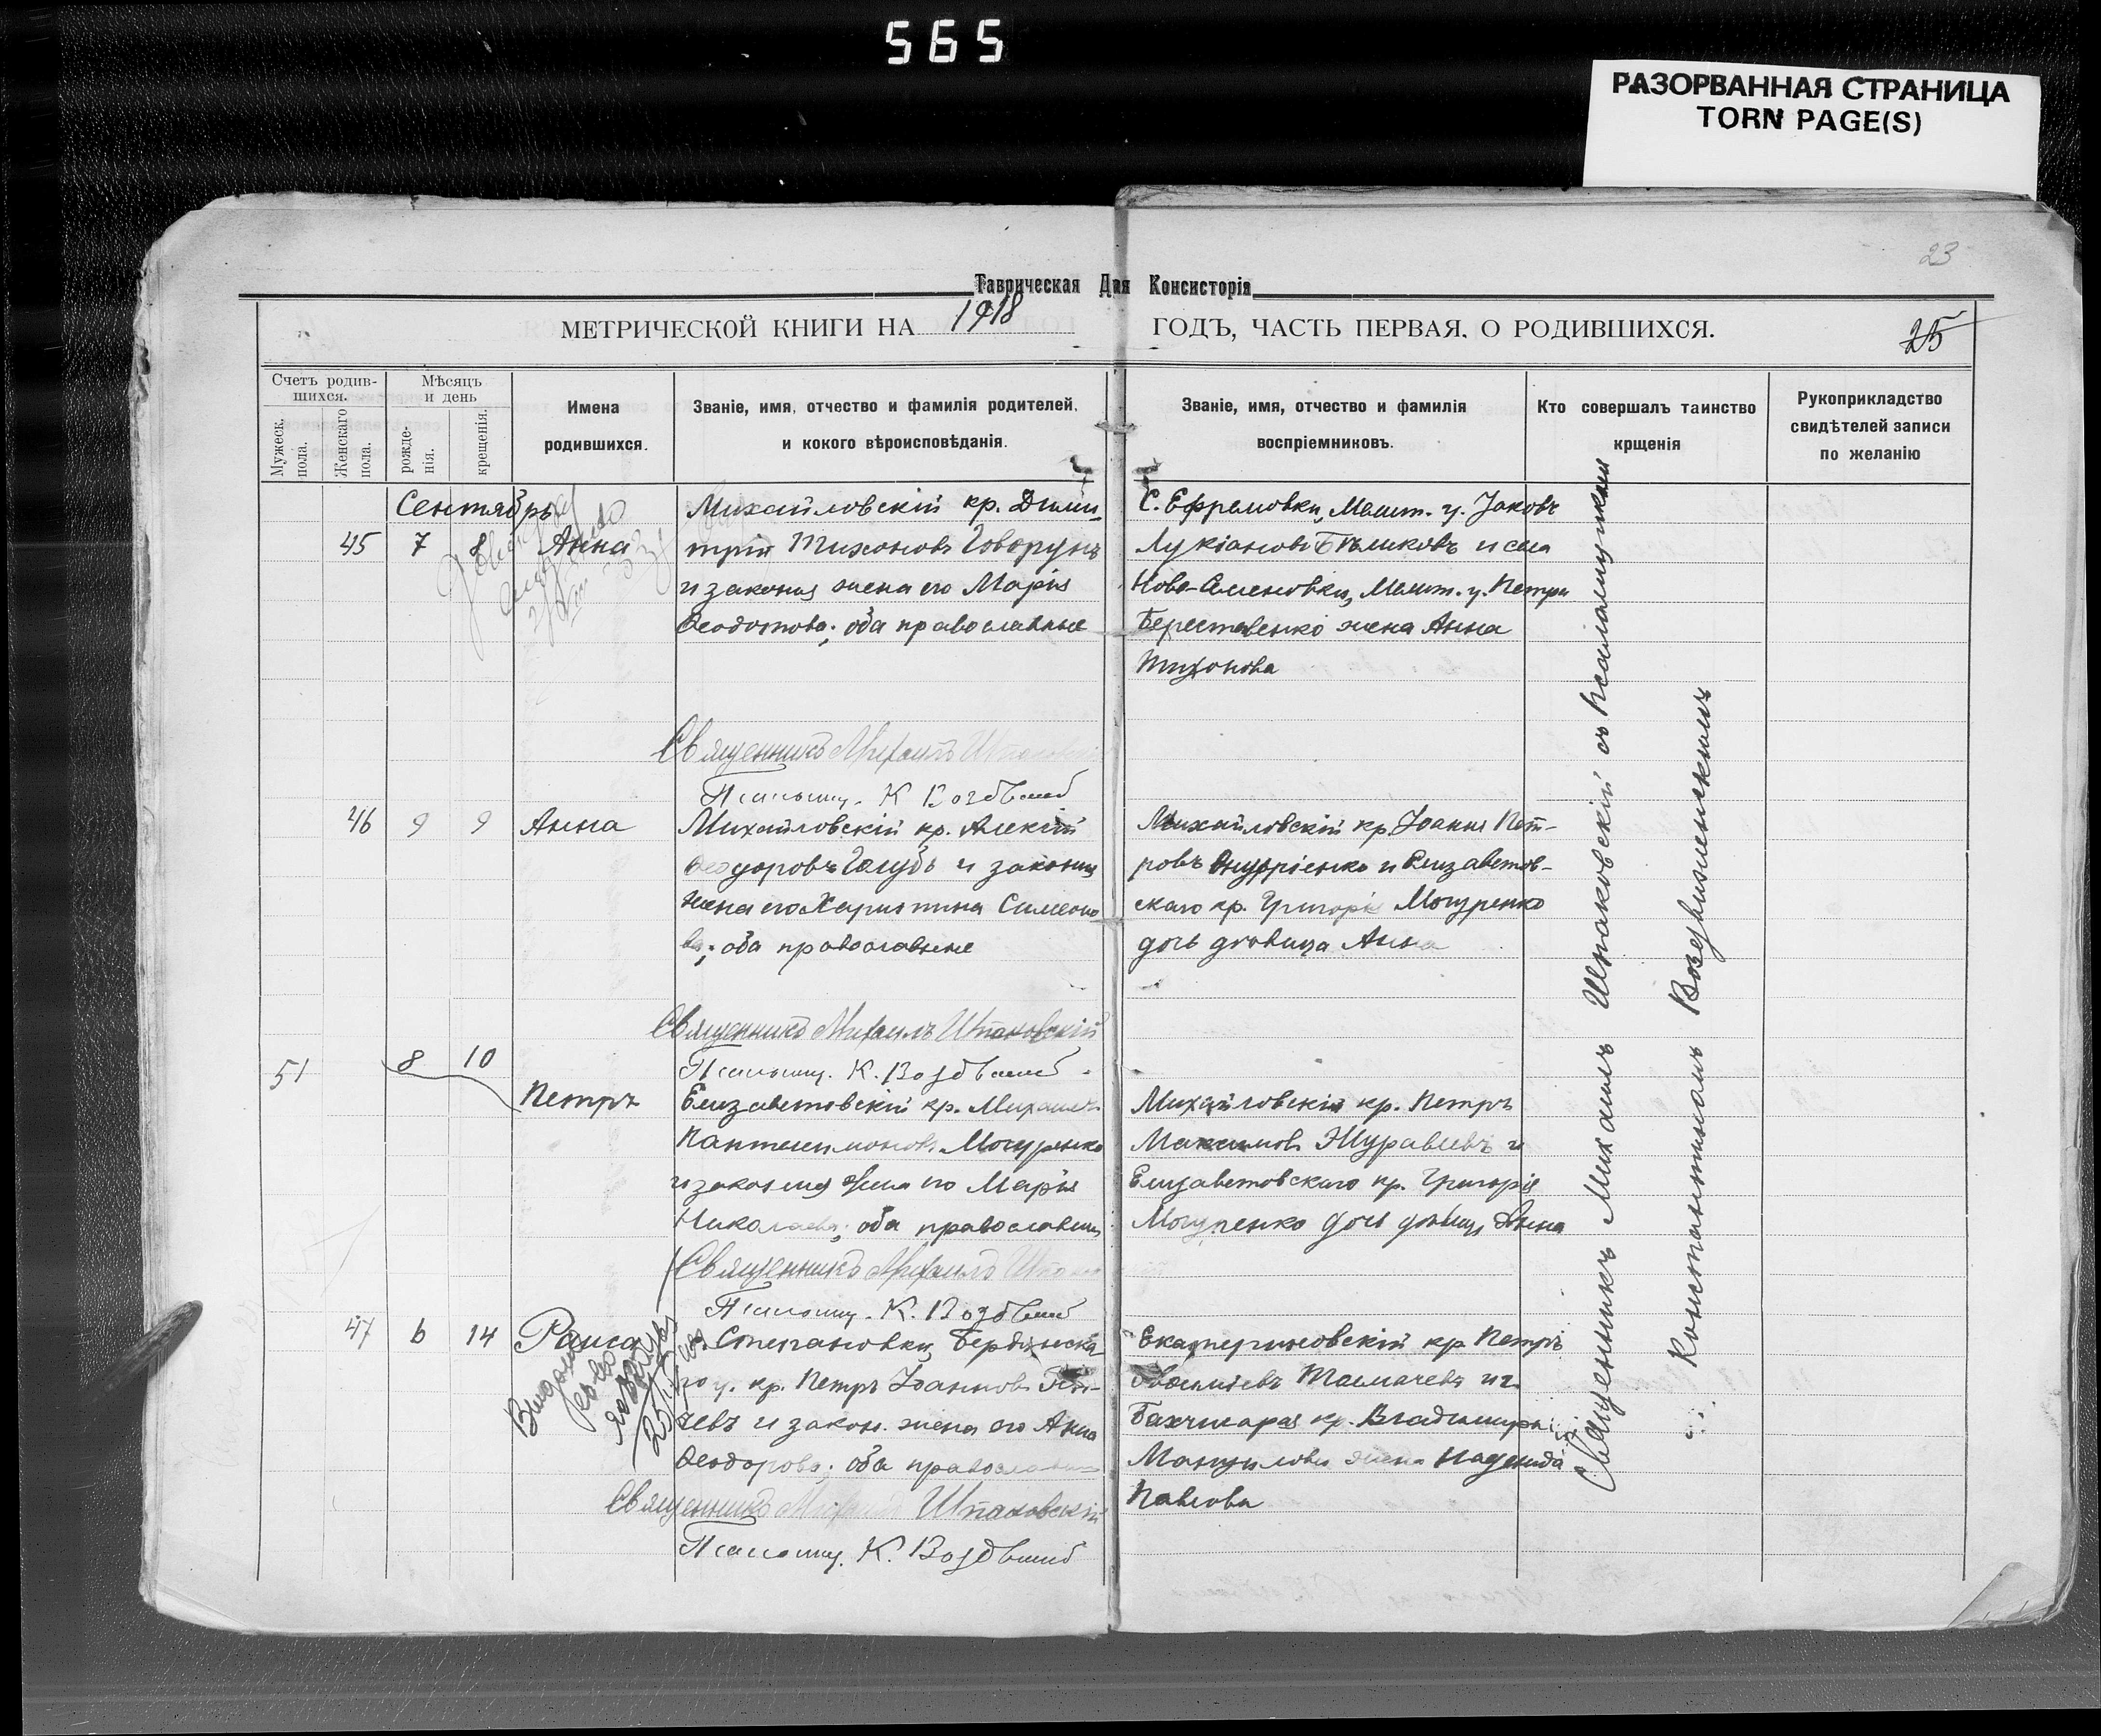 565
РАЗОРВАННАЯ СТРАНИЦА
TORN PAGE(S)
23
Таврическая Дая Консисторія
МЕТРИЧЕСКОЙ КНИГИ НА 1918 ГОДЪ, ЧАСТЬ ПЕРВАЯ, О РОДИВШИХСЯ.
25
Счетъ родив-
шихся.
Мужеск. пола.
Женскаго пола.
Мѣсяцъ
и день
рожде-
нія.
крещенія.
Имена
родившихся.
Званіе, имя, отчество и фамилія родителей,
и кокого вѣроисповѣданія.
Званіе, имя, отчество и фамилія
воспріемниковъ.
Кто совершалъ таинство
крщенія
Рукоприкладство
свидѣтелей записи
по желанію
Сентябрь
45 7 8 Анна
Михайловскій кр. Дими-
трій Тихоновъ Говорунъ
и законная жена его Марія
Ѳеодотова; оба православные
С. Ефремовки, Мелит. у. Іаковъ
Лукіановъ Бѣликовъ и села
Ново-Семеновки, Мелит. у. Петра
жена Анна
Тихонова
Священникъ Михаилъ Шпаковскій
Псаломщ. К. Воздвиж
46 9 9 Анна
Михайловскій кр. Алексій
Ѳеодоровъ Голубь и законная
жена его Христина Симеоно
ва; оба православные
Михайловскій кр. Іоаннъ Пет-
ровъ Онуфріенко и Елизаветов-
скаго кр. Григорія Могуренко
дочь дѣвица Анна
Священникъ Михаилъ Шпаковскій
Псаломщ. К. Воздвиж
51 8 10 Петръ
Елизаветовскій кр. Михаилъ
Пантелеимоновъ Могуренко
и законная жена его Марія
Николаева; оба православные
Михайловскій кр. Петръ
Максимовъ Журавлевъ и
Елизаветовскаго кр. Григорія
Могуренко дочь дѣвица Анна
Священникъ Михаилъ Шпаковскій
Псаломщ. К. Воздвиж
47 6 14 Раиса
Степановки Бердянска-
го у. кр. Петръ Іоанновъ
чевъ и закон. жена его Анна
Ѳеодорова; оба православные
Екатериновскій кр. Петръ
Толмачевъ и г.
Бахчисарая кр. Владимира
Мануилова жена Надежда
Павлова
Священникъ Михаилъ Шпаковскій
Псаломщ. К. Воздвиж
Священникъ Михаилъ Шпаковскій съ Псаломщикомъ
Константиномъ Воздвиженскимъ